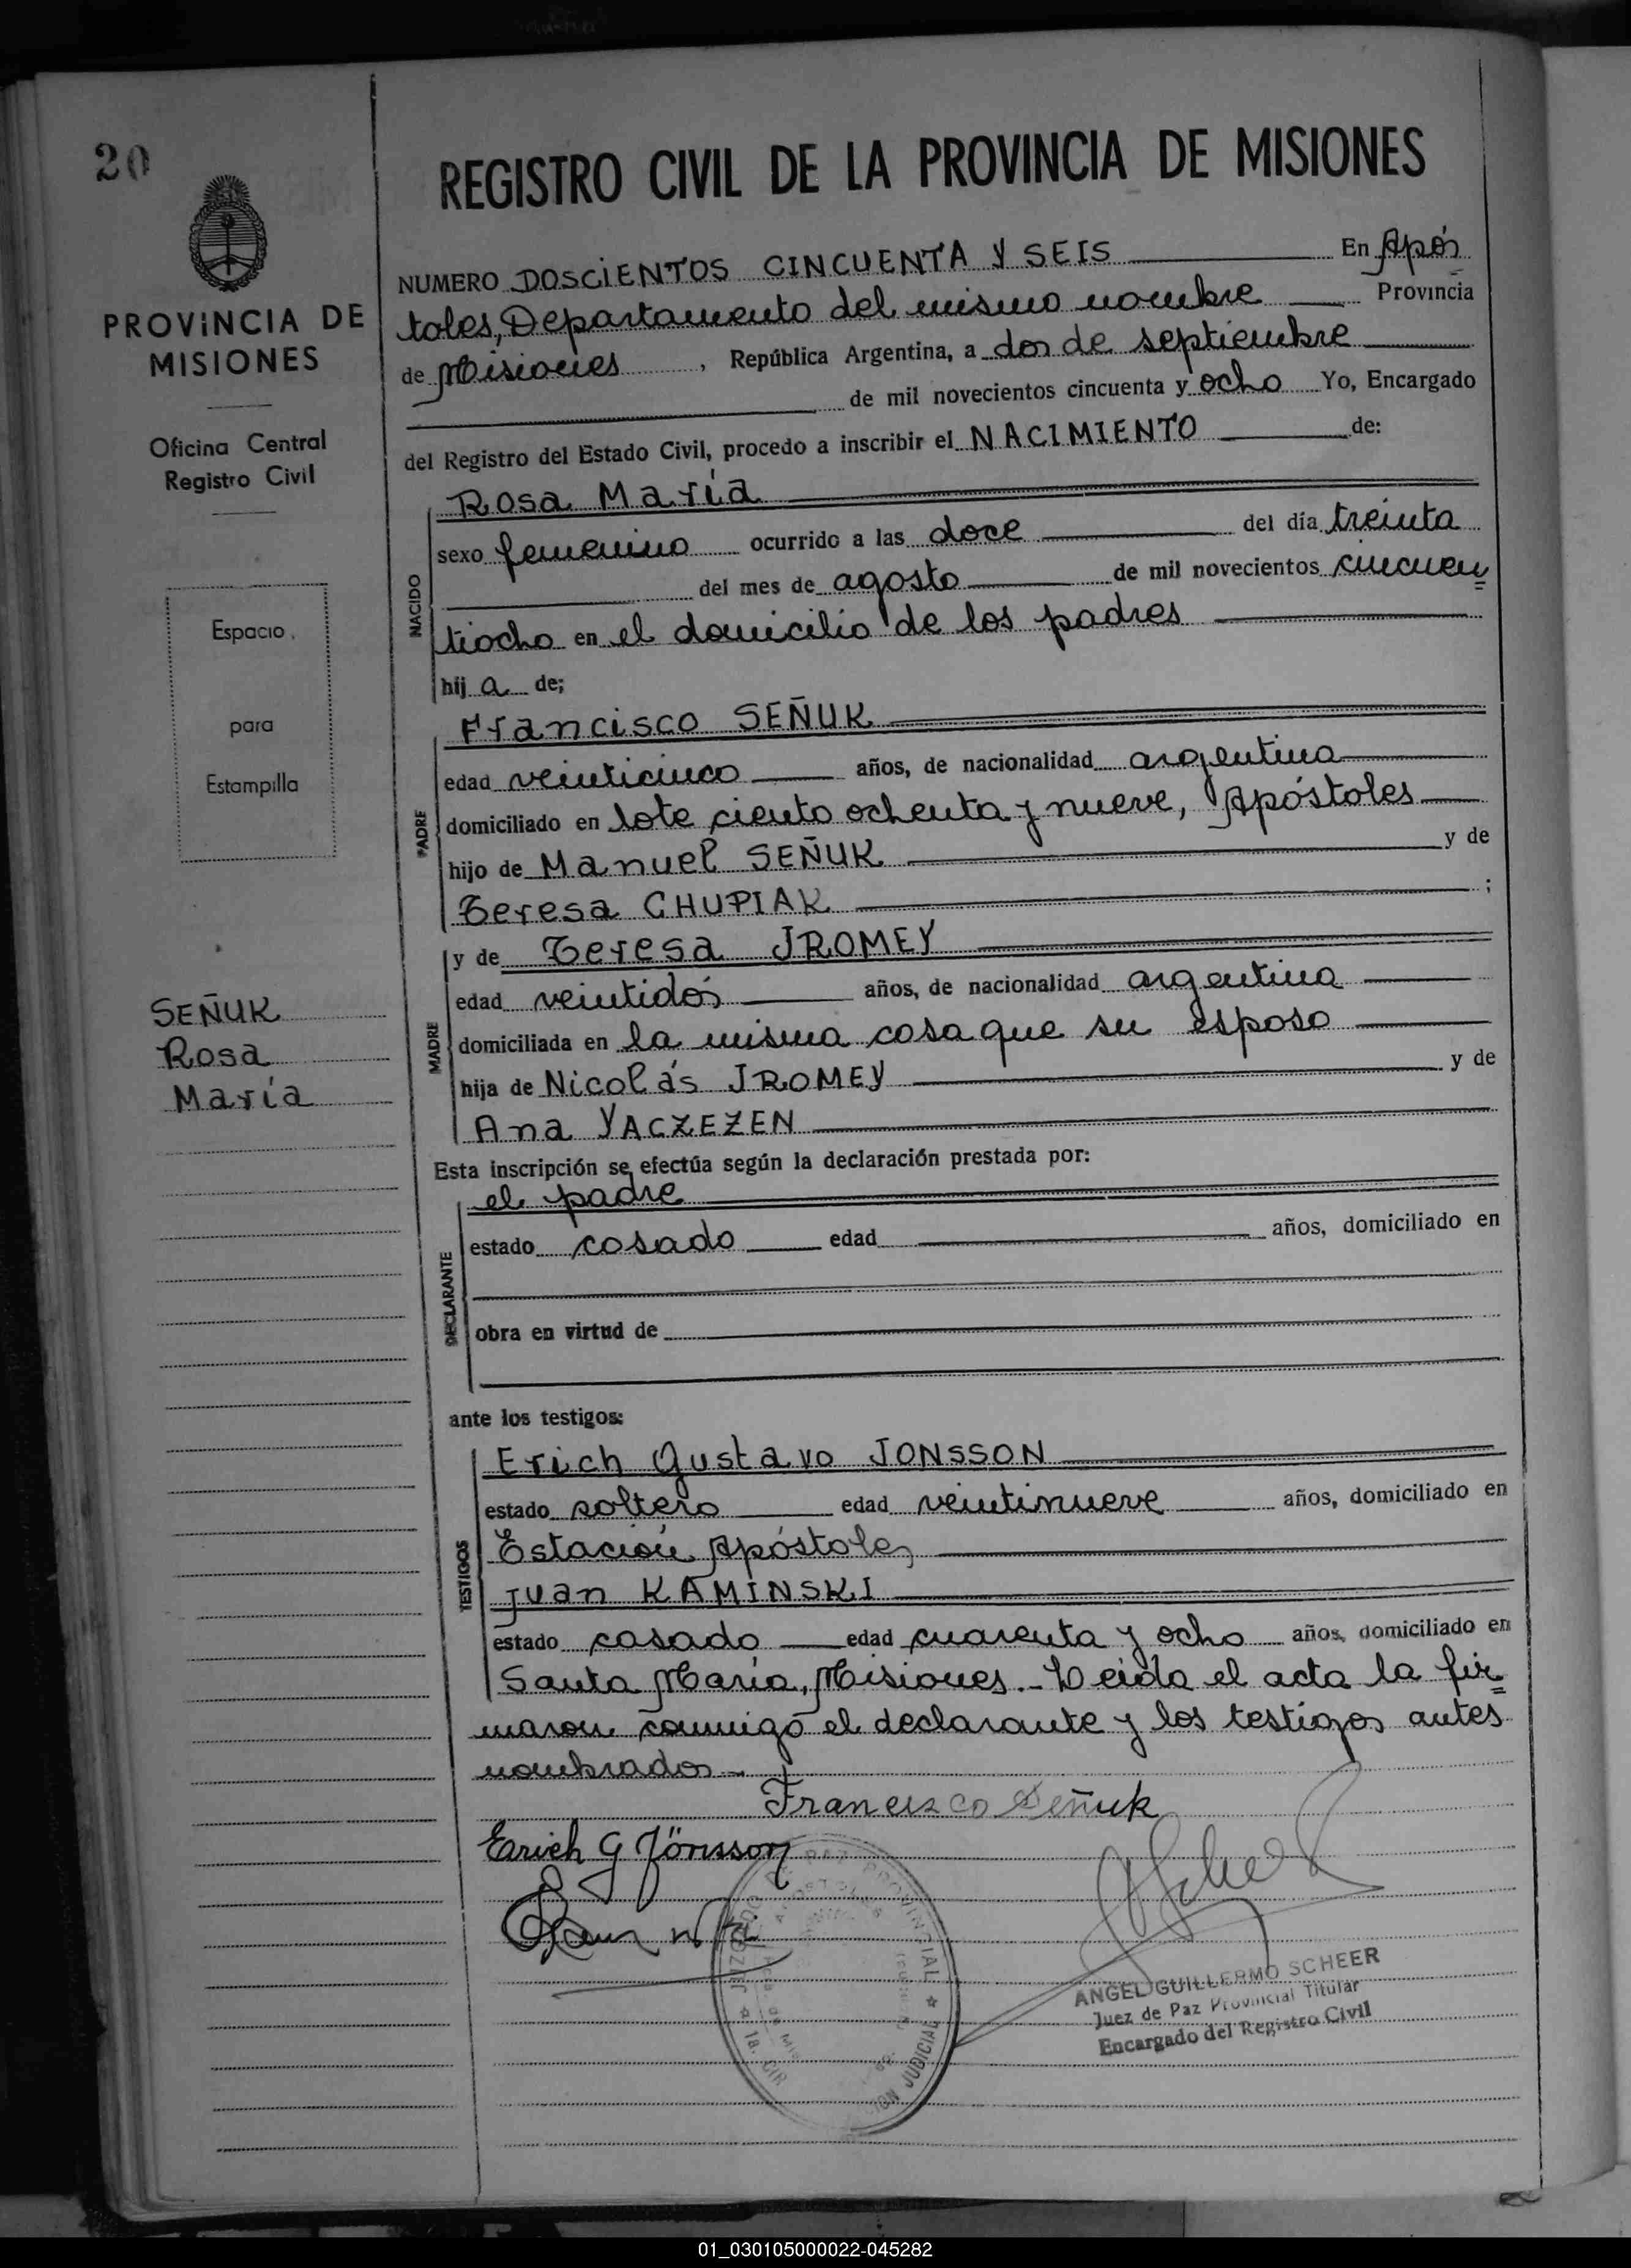 20
PROVINCIA DE
MISIONES
Oficina Central
Registro Civil
Espacio
para
Estampilla
SEÑUK
Rosa
María
REGISTRO CIVIL DE LA PROVINCIA DE MISIONES
NUMERO DOSCIENTOS CINCUENTA Y SEIS En Após
toles, Departamento del mismo nombre Provincia
de Misiones, República Argentina, a dos de septiembre
de mil novecientos cincuenta y ocho Yo, Encargado
del Registro del Estado Civil, procedo a inscribir el NACIMIENTO de:
NACIDO
Rosa María
sexo femenino ocurrido a las doce del día treinta
del mes de agosto de mil novecientos cincuen
tiocho en el domicilio de los padres
hij a de;
PADRE
Francisco SEÑUK
edad veinticinco años, de nacionalidad argentina
domiciliado en lote ciento ochenta y nueve, Apóstoles
hijo de Manuel SEÑUK y de
Teresa CHUPIAK ;
MADRE
y de Teresa JROMEY
edad veintidós años, de nacionalidad argentina
domiciliada en la misma casa que su esposo
hija de Nicolás JROMEY y de
Ana YACZEZEN
Esta inscripción se efectúa según la declaración prestada por:
DECLARANTE
el padre
estado casado edad años, domiciliado en
obra en virtud de
ante los testigos:
TESTIGOS
Erich Gustavo JONSSON
estado soltero edad veintinueve años, domiciliado en
Estación Apóstoles
Juan KAMINSKI
estado casado edad cuarenta y ocho años, domiciliado en
Santa María, Misiones.- Leida el acta la fir=
maron conmigo el declarante y los testigos antes
nombrados.-
Francisco Señuk
Erich G Jönsson
JUZGADO DE PAZ PROVINCIAL
APOSTOLES
1a. CIR
CION JUDICIAL
ANGEL GUILLERMO SCHEER
Juez de Paz Provincial Titular
Encargado del Registro Civil
01_030105000022-045282